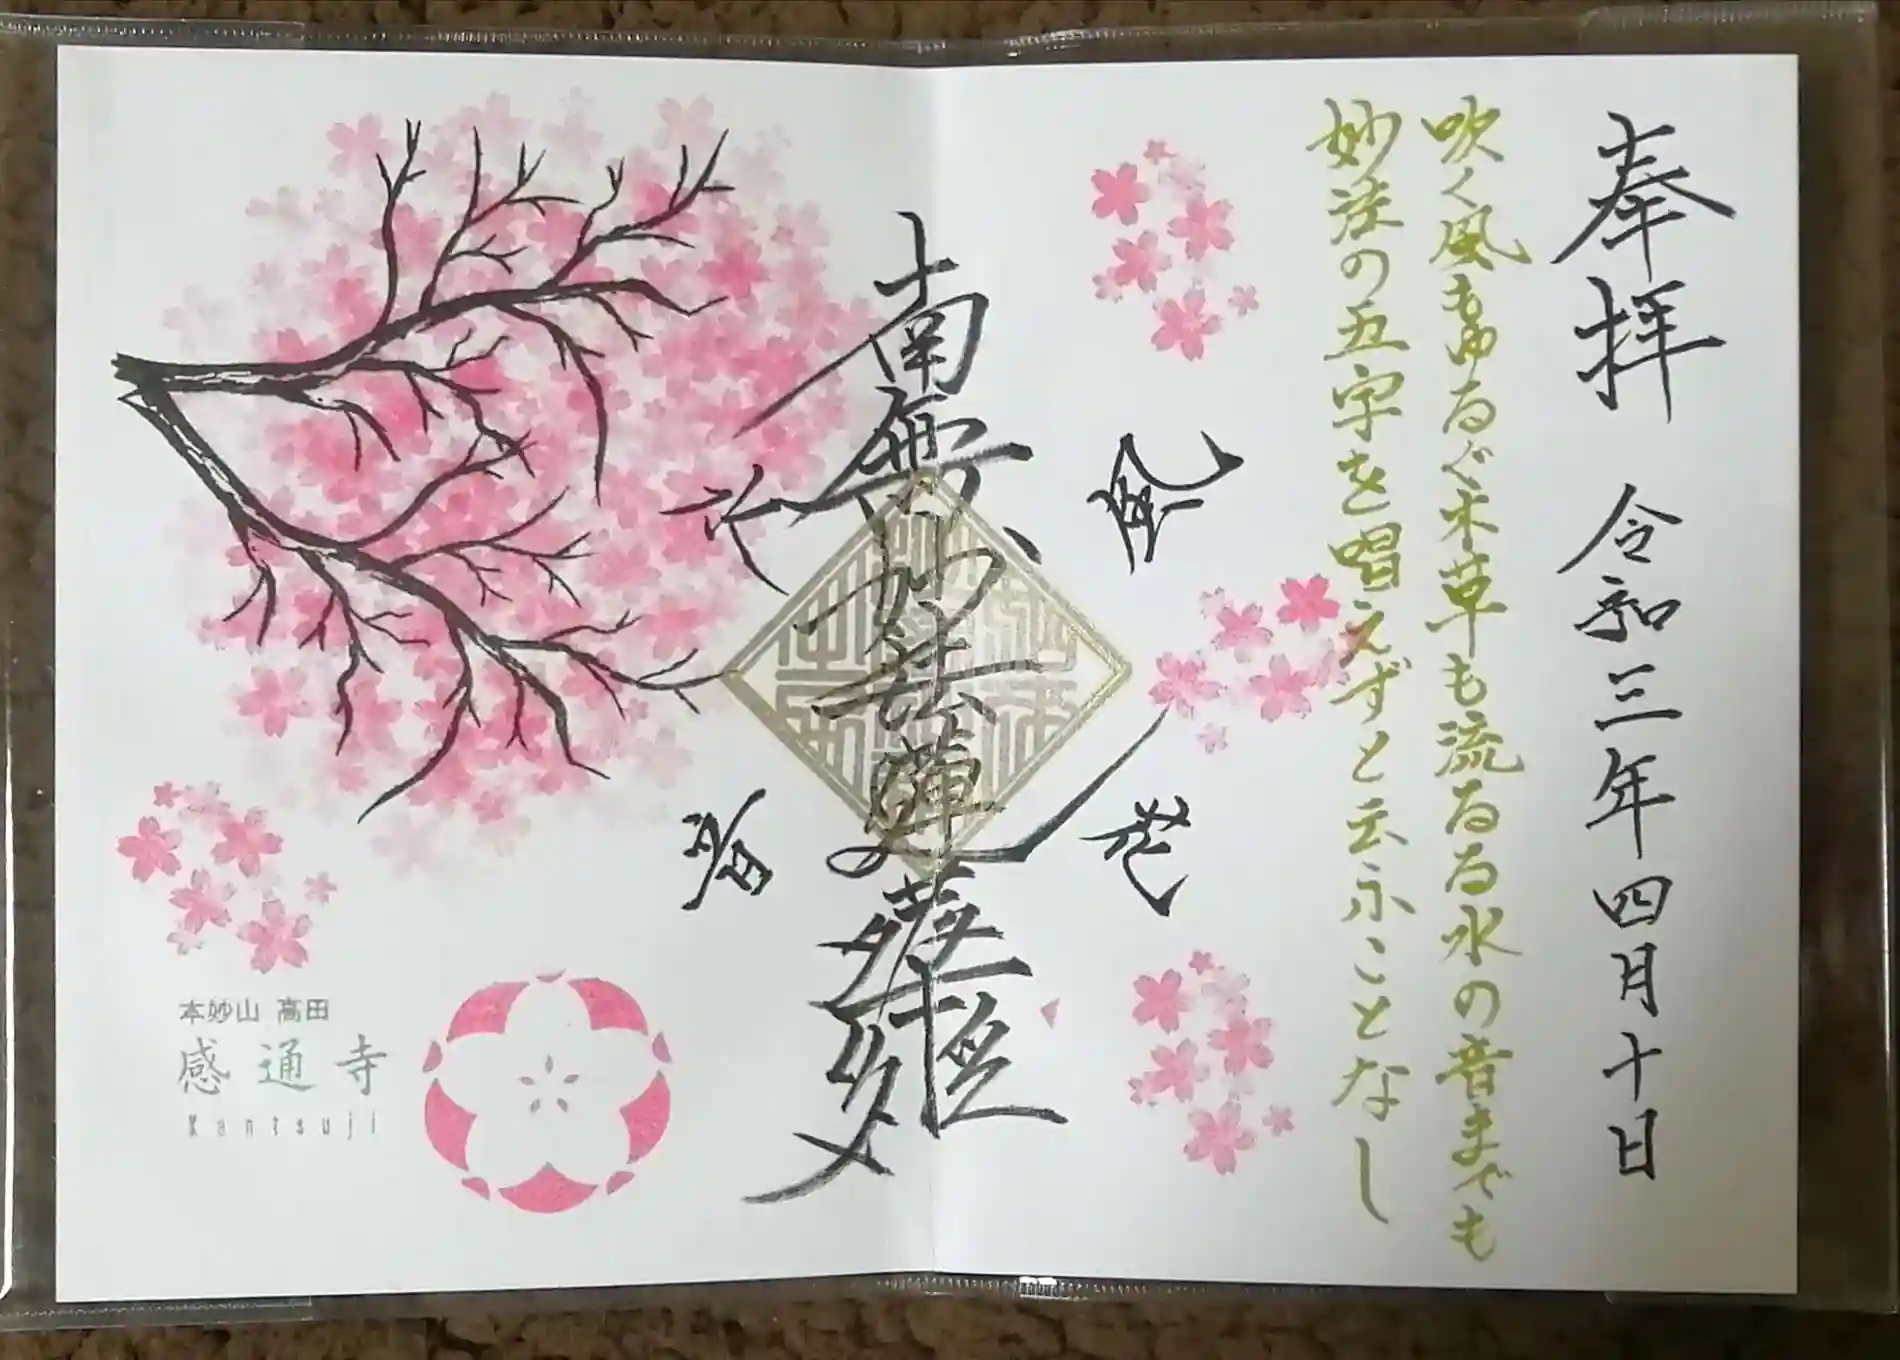 奉拝 令和三年四月十日
吹く風もゆるぐ木草も流るる水の音までも
妙法の五字を唱えずと云ふことなし
風
花
南無妙法蓮華経
音
本妙山 高田
感通寺
Kantsuji